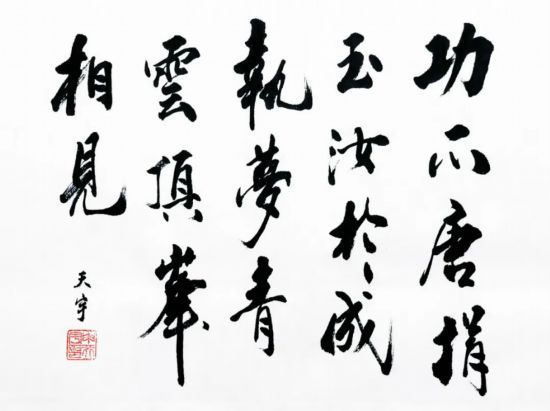 功不唐捐
玉汝於成
執夢青
雲頂峯
相見
天宇